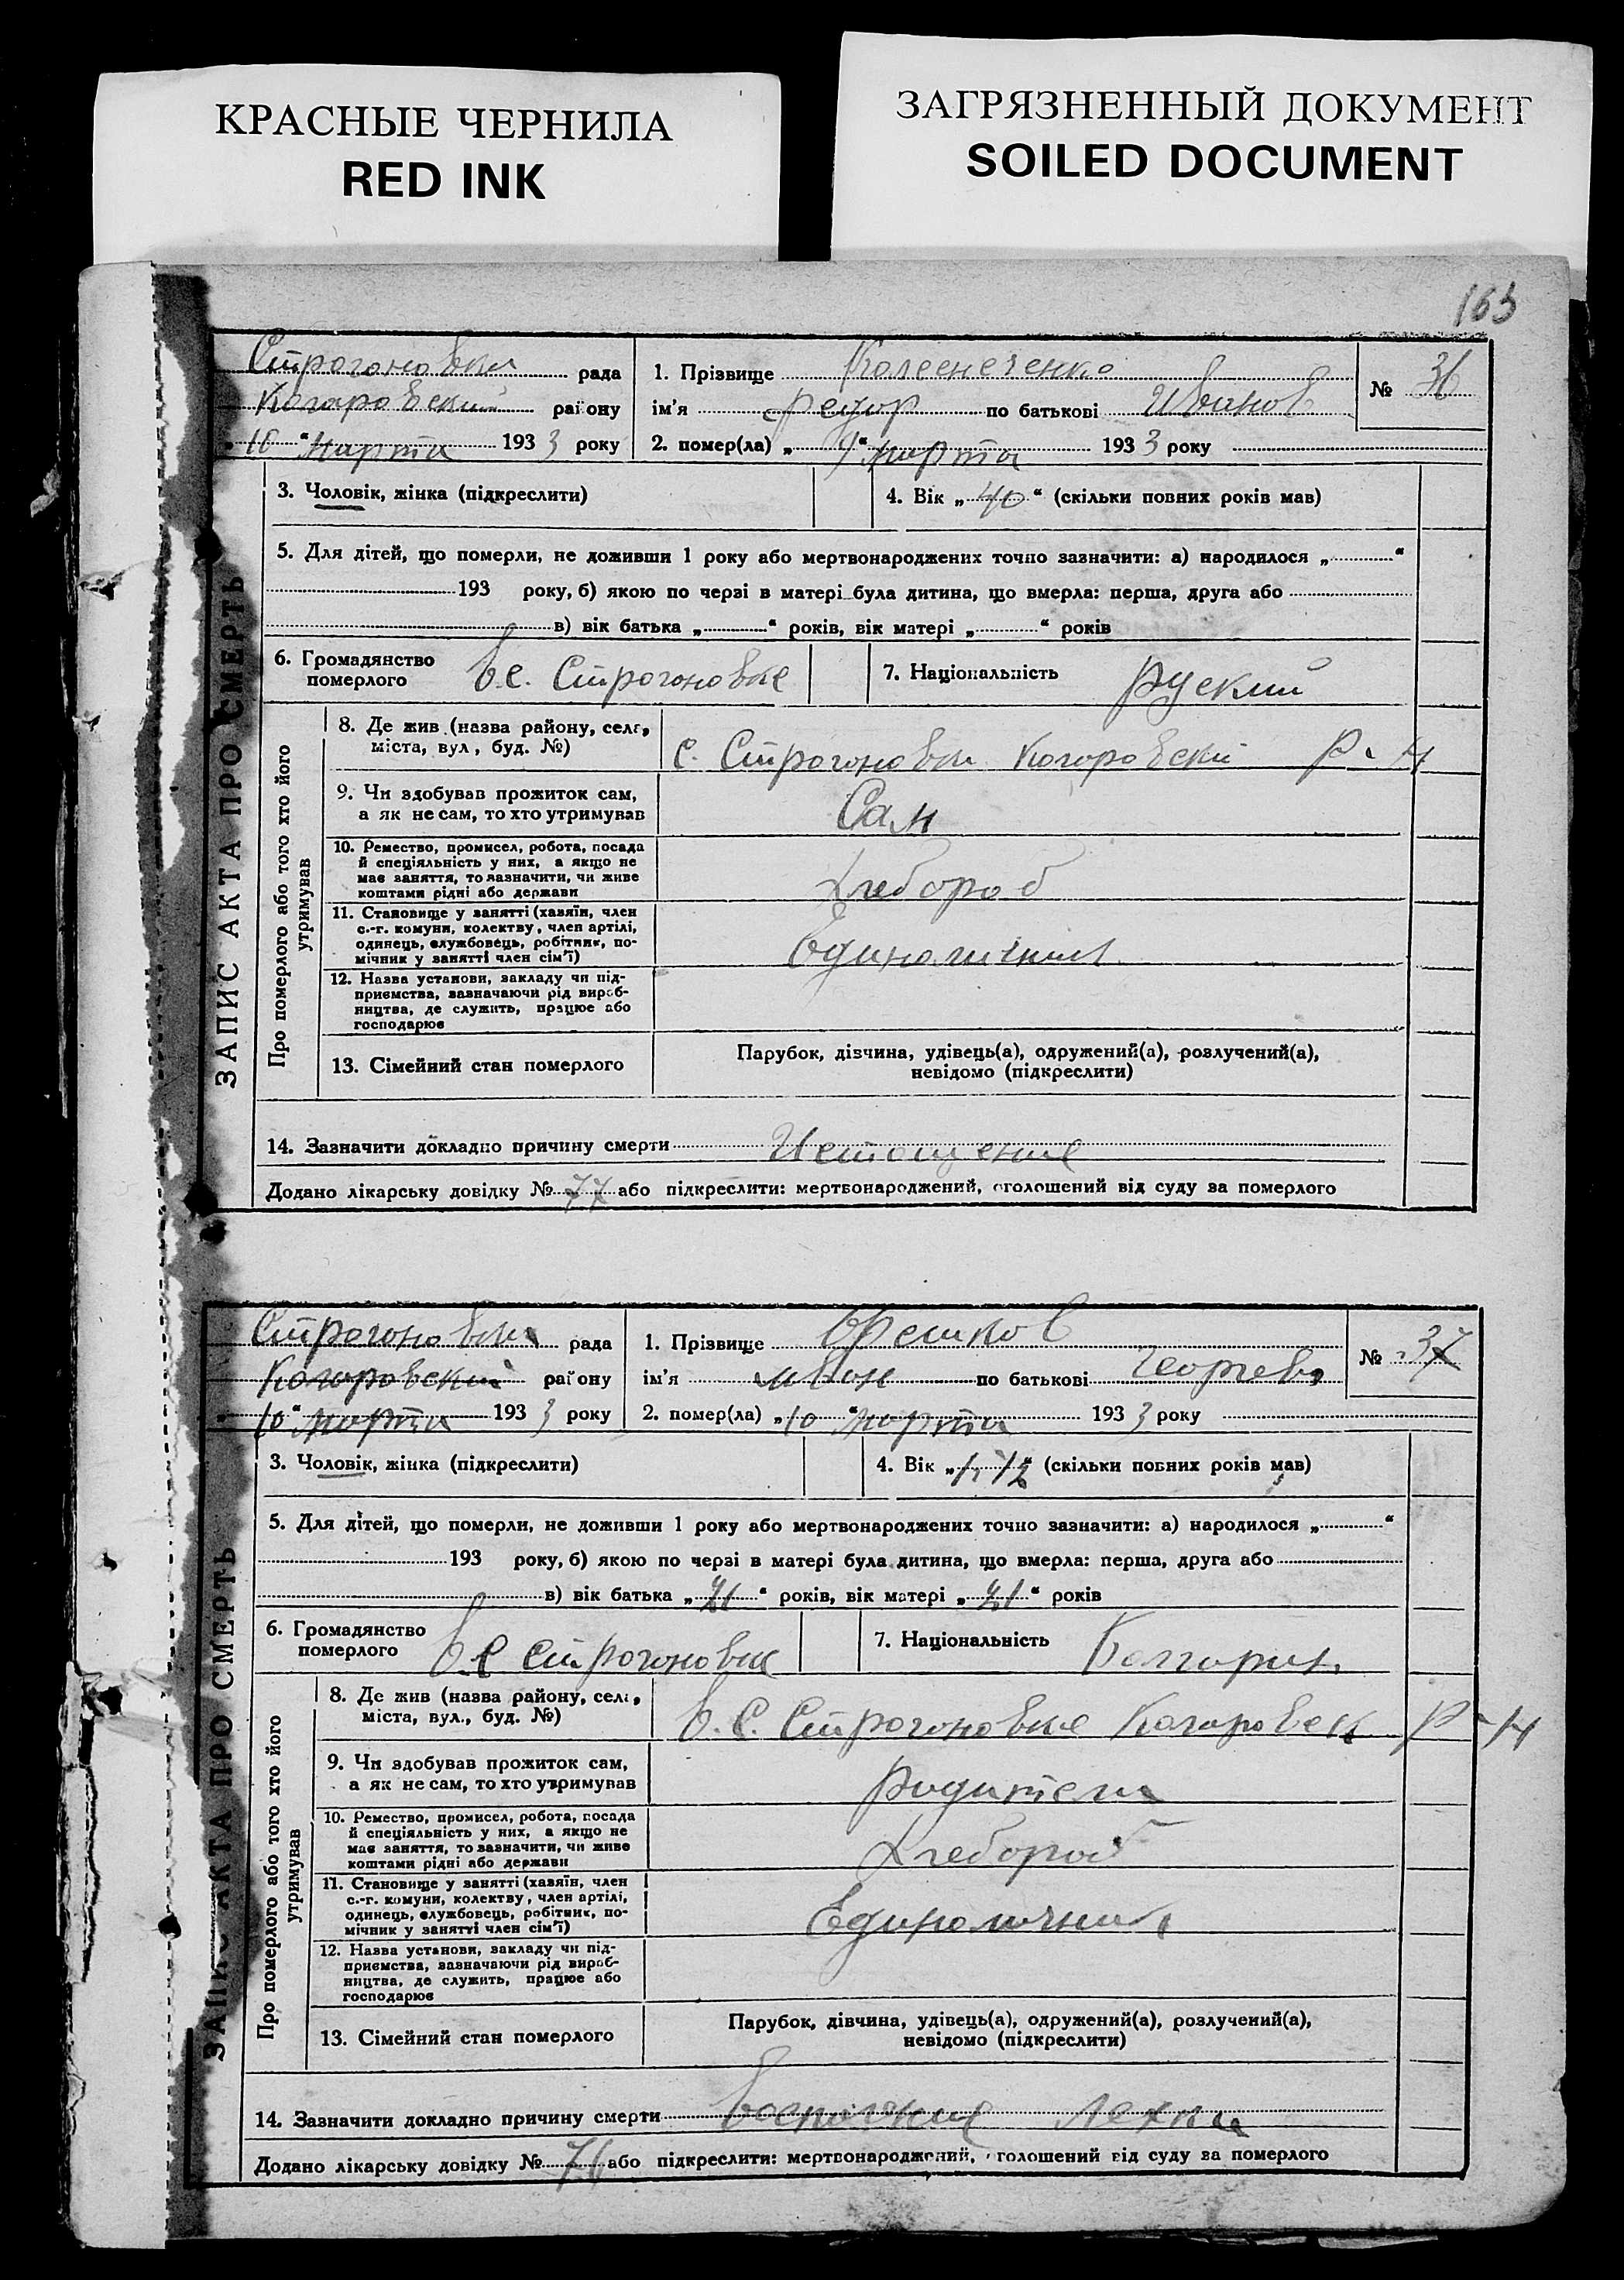 КРАСНЫЕ ЧЕРНИЛА
RED INK
ЗАГРЯЗНЕННЫЙ ДОКУМЕНТ
SOILED DOCUMENT
163
ЗАПИС АКТА ПРО СМЕРТЬ
Строгоновки рада
району
10 "марта 1933 року
1. Прізвище
ім'я Федор по батькові Иванов
№ 36
2. помер(ла) „ 9 " марта 1933 року
3. Чоловік, жінка (підкреслити)
4. Вік „ 40 " (скільки повних років мав)
5. Для дітей, що померли, не доживши 1 року або мертвонароджених точно зазначити: а) народилося „ "
193 року, б) якою по черзі в матері була дитина, що вмерла: перша, друга або
в) вік батька „ " років, вік матері „ " років
6. Громадянство
померлого
в с. Строгоновке
7. Національність Руский
Про померлого або того хто його
утримував
8. Де жив (назва району, села,
міста, вул., буд. №)
с. Строгоновки Р-н
9. Чи здобував прожиток сам,
а як не сам, то хто утримував
Сам
10. Ремество, промисел, робота, посада
й спеціяльність у них, а якщо не
має заняття, то зазначити, чи живе
коштами рідні або держави
Хлебороб
11. Становище у занятті (хазяїн, член
с.-г. комуни, колективу, член артілі,
одинець, службовець, робітник, по-
мічник у занятті член сім'ї)
Единоличник
12. Назва установи, закладу чи під-
приємства, зазначаючи рід вироб-
ництва, де служить, працює або
господарює
13. Сімейний стан померлого
Парубок, дівчина, удівець(а), одружений(а), розлучений(а),
невідомо (підкреслити)
14. Зазначити докладно причину смерти Истощение
Додано лікарську довідку № 77 або підкреслити: мертвонароджений, оголошений від суду за померлого
ЗАПИС АКТА ПРО СМЕРТЬ
Строгоновки рада
району
10 "марта 1933 року
1. Прізвище Орешков
ім'я Иван по батькові Георгиев
№ 37
2. помер(ла) „ 10 " марта 1933 року
3. Чоловік, жінка (підкреслити)
4. Вік „ " (скільки повних років мав)
5. Для дітей, що померли, не доживши 1 року або мертвонароджених точно зазначити: а) народилося „ "
193 року, б) якою по черзі в матері була дитина, що вмерла: перша, друга або
в) вік батька „ 21 " років, вік матері „ 21 " років
6. Громадянство
померлого
в с Строгоновке
7. Національність Болгарин
Про померлого або того хто його
утримував
8. Де жив (назва району, села,
міста, вул., буд. №)
в. с. Строгоновке Р-н
9. Чи здобував прожиток сам,
а як не сам, то хто утримував
родители
10. Ремество, промисел, робота, посада
й спеціяльність у них, а якщо не
має заняття, то зазначити, чи живе
коштами рідні або держави
Хлебороб
11. Становище у занятті (хазяїн, член
с.-г. комуни, колективу, член артілі,
одинець, службовець, робітник, по-
мічник у занятті член сім'ї)
Единоличник
12. Назва установи, закладу чи під-
приємства, зазначаючи рід вироб-
ництва, де служить, працює або
господарює
13. Сімейний стан померлого
Парубок, дівчина, удівець(а), одружений(а), розлучений(а),
невідомо (підкреслити)
14. Зазначити докладно причину смерти
Додано лікарську довідку № 76 або підкреслити: мертвонароджений, оголошений від суду за померлого